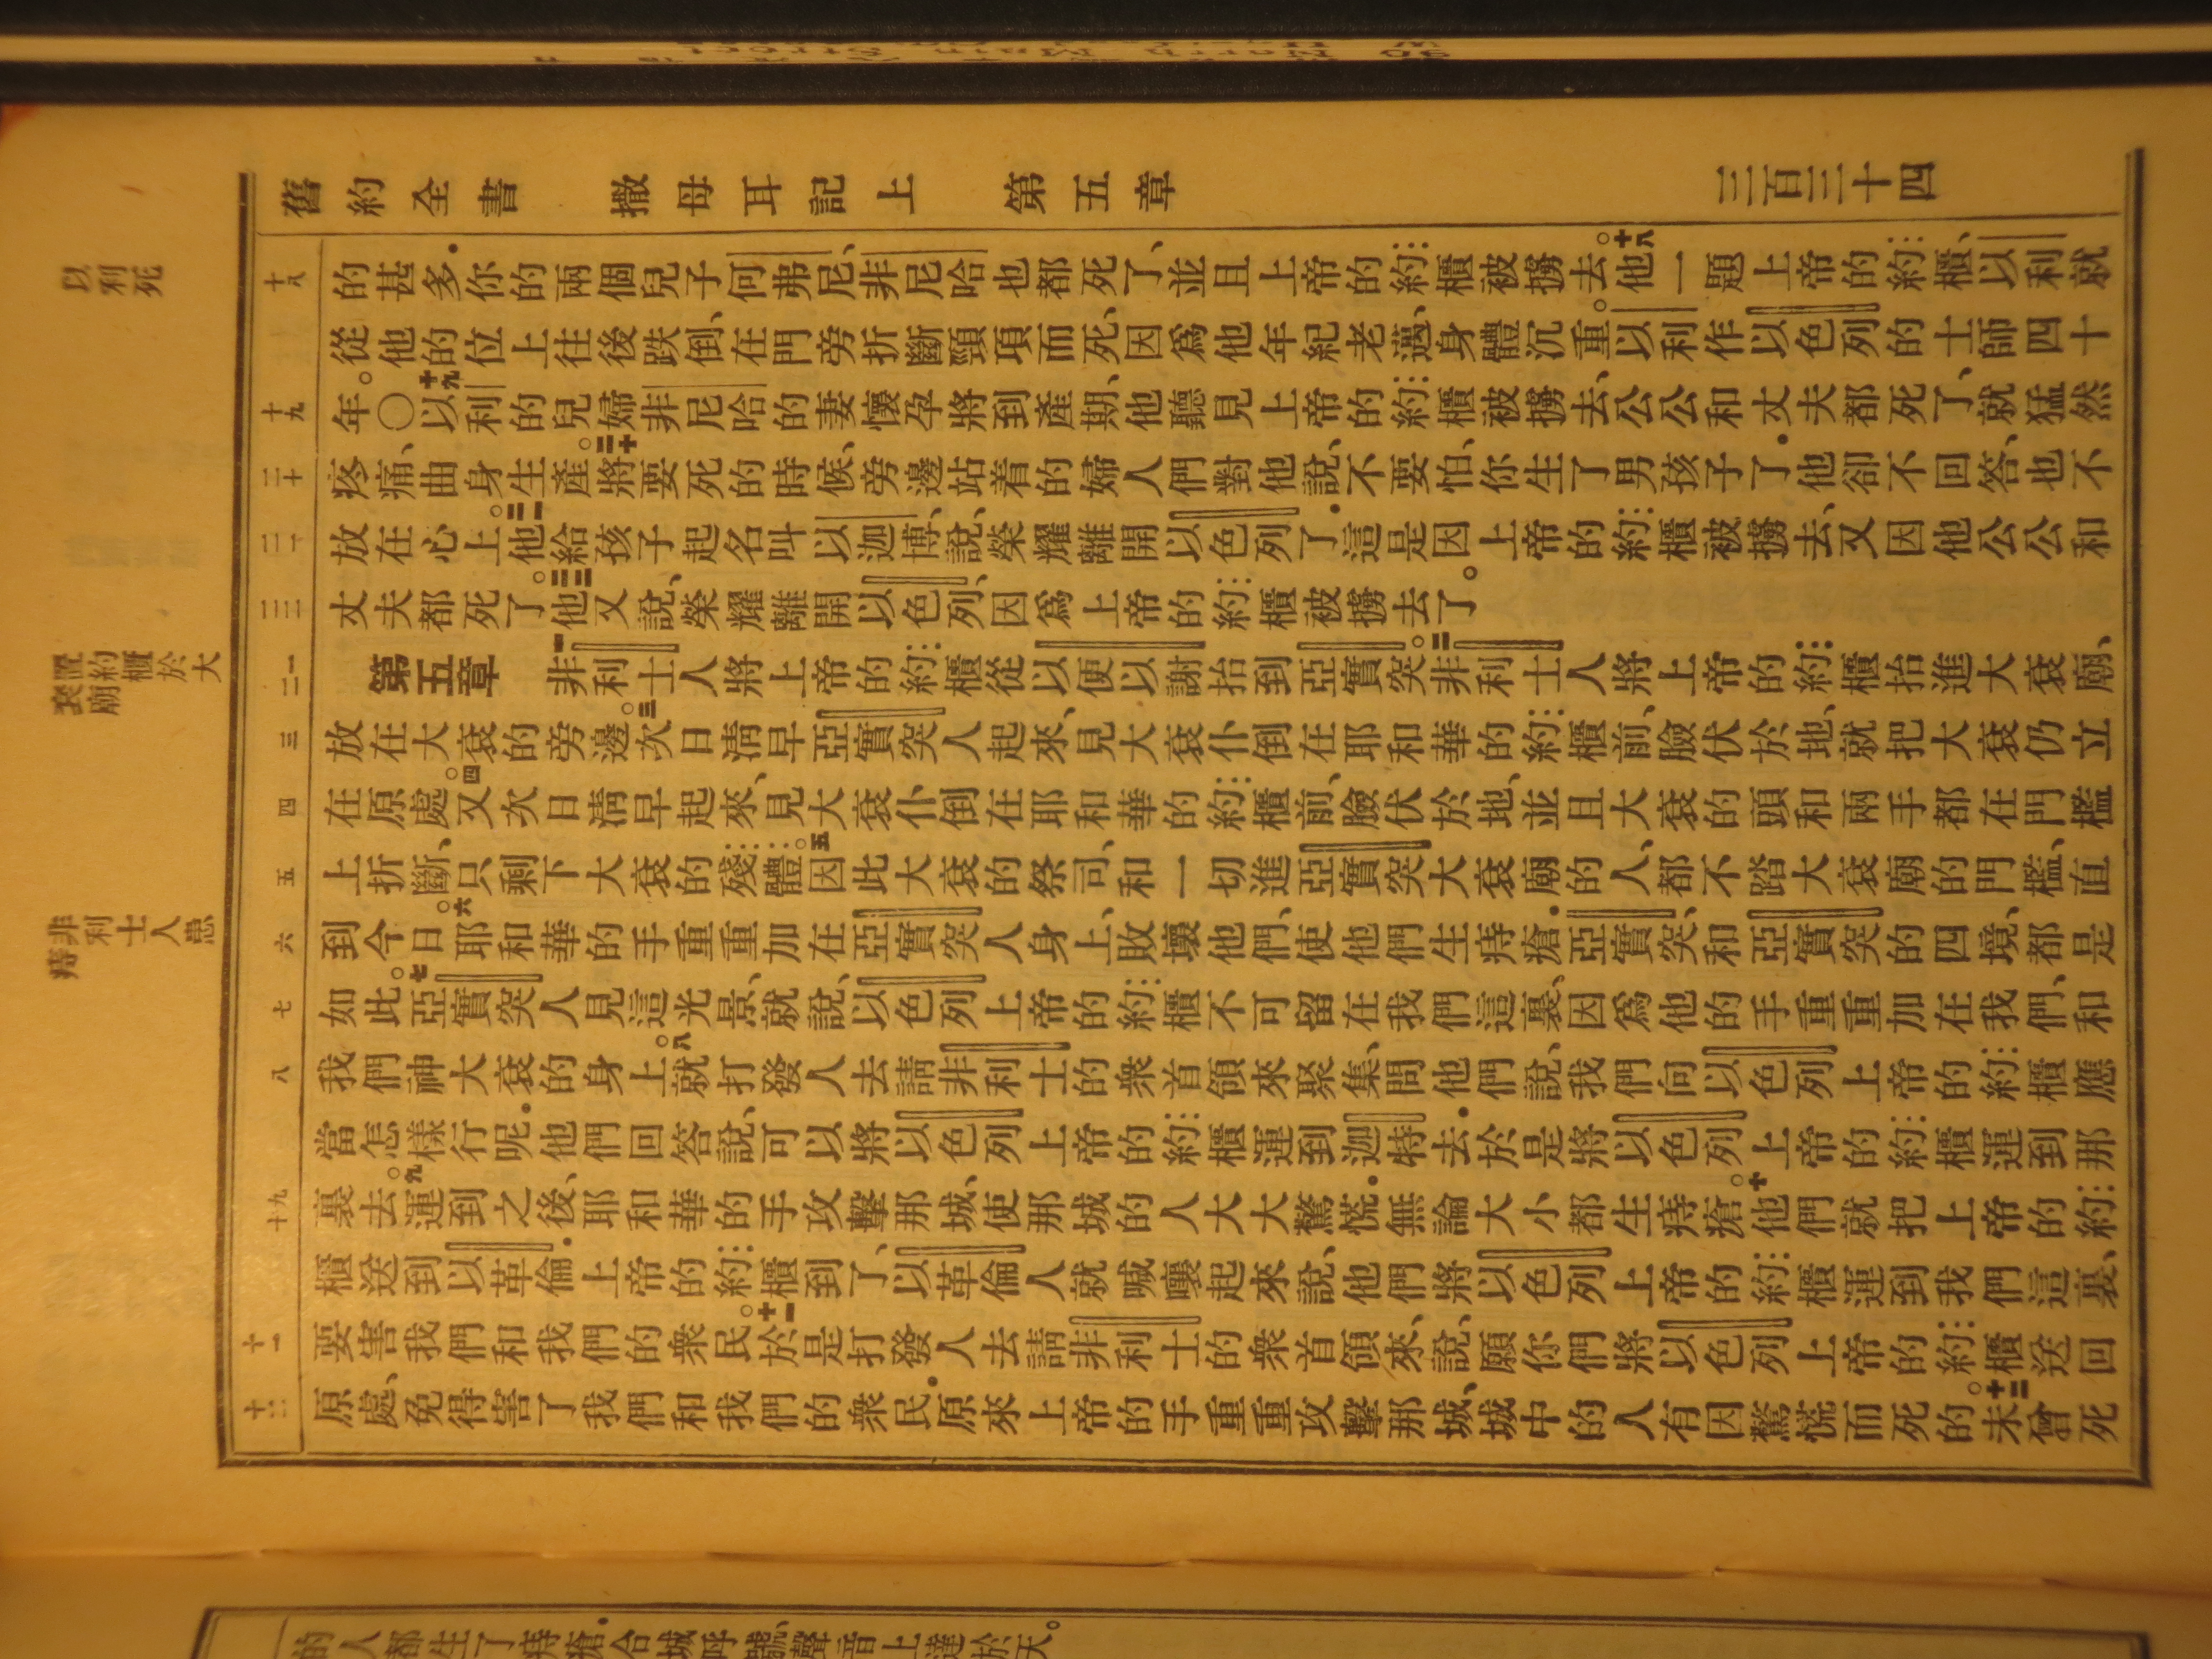 舊約全書 撒母耳記上 第五章 三百三十四
以利死
十八
的甚多．你的兩個兒子何弗尼、非尼哈也都死了、並且上帝的約櫃被擄去。十八他一題上帝的約櫃、以利就
從他的位上往後跌倒、在門旁折斷頸項而死、因爲他年紀老邁、身體沉重。以利作以色列的士師四十
十九
年。〇十九以利的兒婦非尼哈的妻懷孕將到產期、他聽見上帝的約櫃被擄去、公公和丈夫都死了、就猛然
二十
疼痛、曲身生產。二十將要死的時候、旁邊站着的婦人們對他說、不要怕、你生了男孩子了．他卻不回答、也不
二一
放在心上。二一他給孩子起名叫以迦博、說、榮耀離開以色列了．這是因上帝的約櫃被擄去、又因他公公和
二二
丈夫都死了。二二他又說、榮耀離開以色列、因爲上帝的約櫃被擄去了。
置約櫃於大
袞廟
一二
第五章 一非利士人將上帝的約櫃從以便以謝抬到亞實突。二非利士人將上帝的約櫃抬進大袞廟、
三
放在大袞的旁邊。三次日清早亞實突人起來、見大袞仆倒在耶和華的約櫃前、臉伏於地、就把大袞仍立
四
在原處。四又次日清早起來、見大袞仆倒在耶和華的約櫃前、臉伏於地、並且大袞的頭和兩手都在門檻
五
上折斷、只剩下大袞的殘體。五因此大袞的祭司、和一切進亞實突大袞廟的人、都不踏大袞廟的門檻、直
非利士人患
痔
六
到今日。六耶和華的手重重加在亞實突人身上、敗壞他們、使他們生痔瘡．亞實突、和亞實突的四境、都是
七
如此。七亞實突人見這光景、就說、以色列上帝的約櫃不可留在我們這裏、因爲他的手重重加在我們、和
八
我們神大袞的身上。八就打發人去請非利士的衆首領來聚集、問他們說、我們向以色列上帝的約櫃應
當怎樣行呢．他們回答說、可以將以色列上帝的約櫃運到迦特去．於是將以色列上帝的約櫃運到那
九十
裏去。九運到之後、耶和華的手攻擊那城、使那城的人大大驚慌．無論大小都生痔瘡。十他們就把上帝的約
櫃送到以革倫．上帝的約櫃到了、以革倫人就喊嚷起來說、他們將以色列上帝的約櫃運到我們這裏、
十一
要害我們和我們的衆民。十一於是打發人去請非利士的衆首領來、說、願你們將以色列上帝的約櫃送回
十二
原處、免得害了我們和我們的衆民．原來上帝的手重重攻擊那城、城中的人有因驚慌而死的。十二未曾死
的人都生了痔瘡．合城呼號、聲音上達於天。